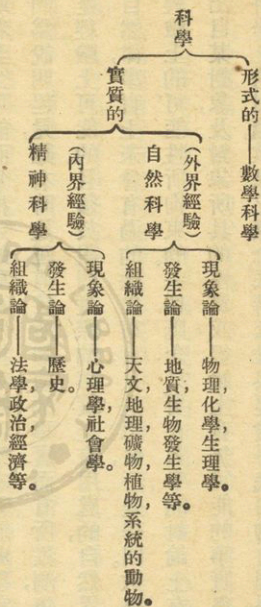 科學
形式的——數學科學
實質的
(外界經驗)
自然科學
現象論——物理,化學,生理學。
發生論——地質,生物發生學等。
組織論——天文,地理,礦物,植物,系統的動物。
(內界經驗)
精神科學
現象論——心理學,社會學。
發生論——歷史。
組織論——法學,政治,經濟等。